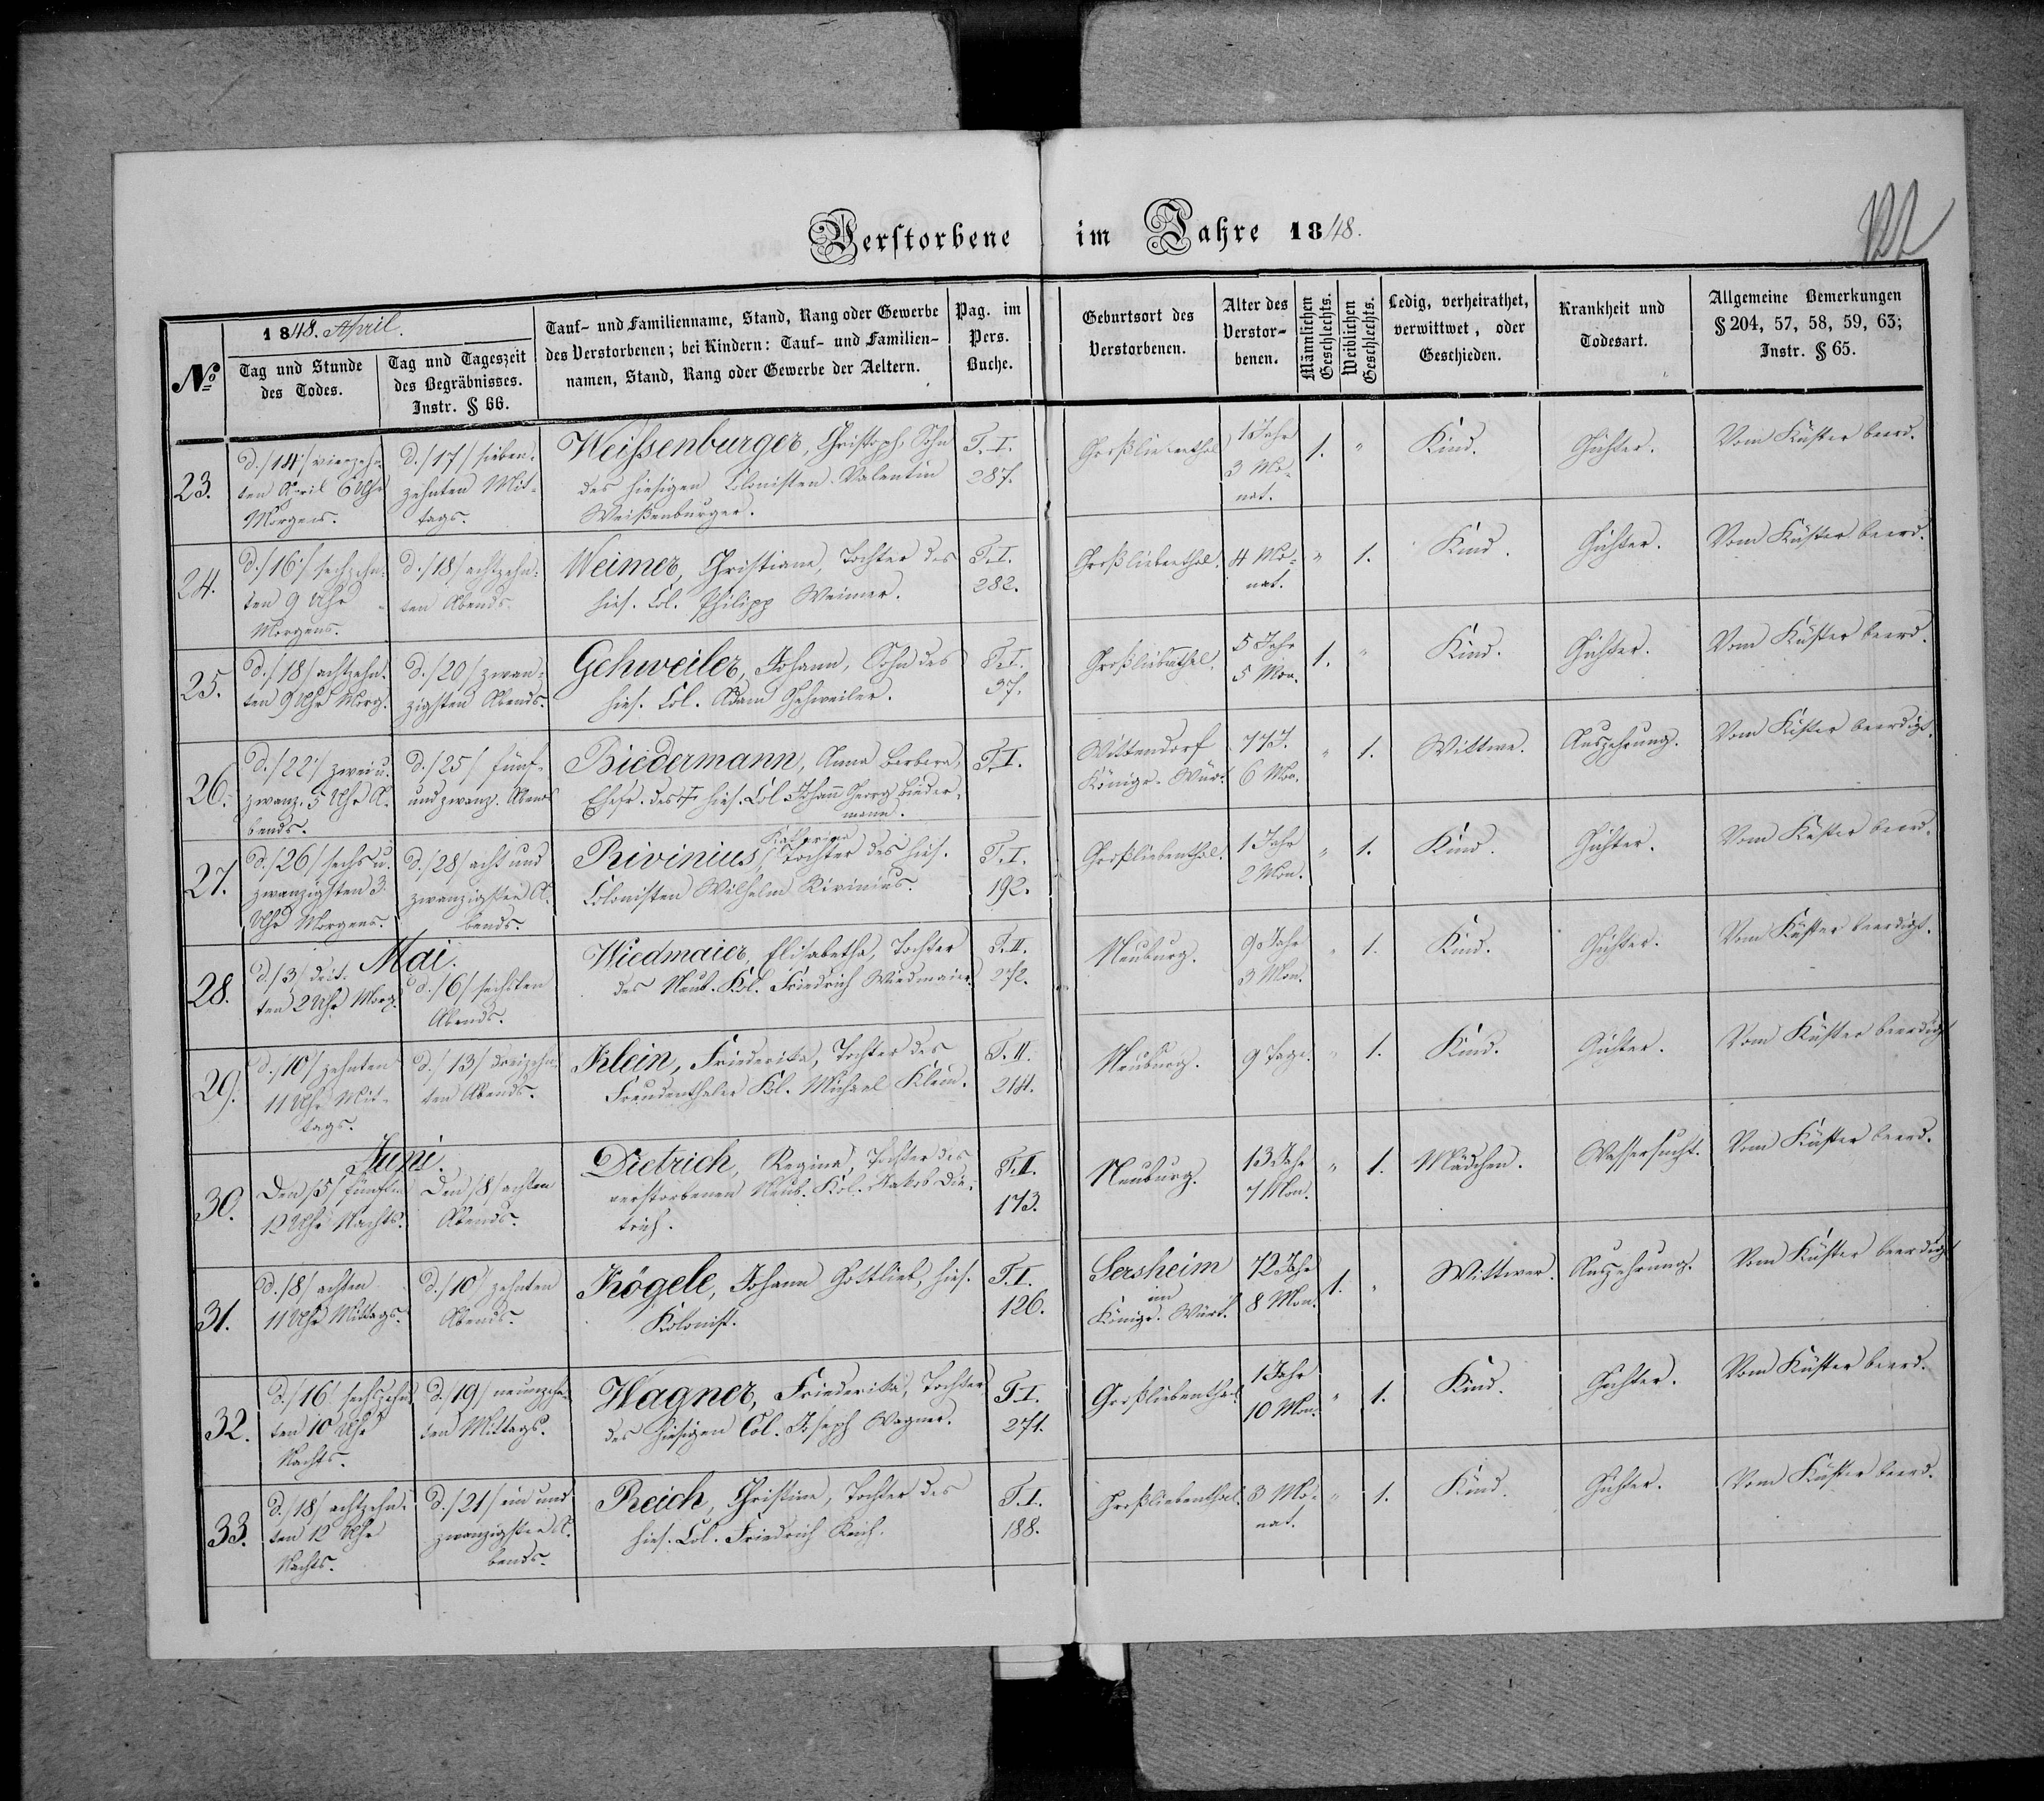 Verstorbene im Jahre 1848.
122
№
1848. April.
Tag und Stunde des Todes.
Tag und Tageszeit des Begräbnisses. Instr. § 66.
Tauf- und Familienname, Stand, Rang oder Gewerbe
des Verstorbenen; bei Kindern: Tauf- und Familien-
namen, Stand, Rang oder Gewerbe der Aeltern.
Pag. im Pers. Buche.
Geburtsort des Verstorbenen.
Alter des Verstor- benen.
Männlichen Geschlechts.
Weiblichen Geschlechts.
Ledig, verheirathet, verwittwet, oder Geschieden.
Krankheit und Todesart.
Allgemeine Bemerkungen
§ 204, 57, 58, 59, 63;
Instr. § 65.
23.
d. /14/ vierzehn-
ten April 6 Uhr
Morgens.
d. /17/ sieben-
zehnten Mit-
tags.
Weißenburger, Christoph, Sohn
des hiesigen Colonisten Valentin
Weißenburger.
T. I.
287.
Großliebenthal
1 Jahr
3 Mo-
nat.
1. "
Kind.
Gichter.
Vom Küster beerd.
24.
d. /16/ sechzehn-
ten 9 Uhr
Morgens.
d. /18/ achtzehn-
ten Abends.
Weimer, Christiana, Tochter des
hies. Col. Philipp Weimer.
T. I.
282.
Großliebenthal.
4 Mo-
nat.
" 1.
Kind.
Gichter.
Vom Küster beerd.
25.
d. /18/ achtzehn-
ten 9 Uhr Morg.
d. /20/ zwan-
zigsten Abends.
Gehweiler, Johann, Sohn des
hies. Col. Adam Gehweiler.
T. I.
37.
Großliebenthal.
5 Jahr
5 Mon.
1. "
Kind.
Gichter.
Vom Küster beerd.
26.
d. /22/ zwei u.
zwanz. 5 Uhr A-
bends.
d. /25/ fünf-
und zwanz. Abends
Biedermann, Anna Barbara,
Ehefr. des † hies. Col. Johann Georg Bieder-
mann.
T. I.
Wittendorf
Königr. Würt.
77 J.
6 Mon.
" 1.
Wittwe.
Auszehrung.
Vom Küster beerdigt.
27.
d. /26/ sechs u.
zwanzigsten 3
Uhr Morgens.
d. /28/ acht und
zwanzigsten A-
bends.
Katharina
Rivinius, Tochter des hies.
Colonisten Wilhelm Rivinius.
T. I.
192.
Großliebenthal.
1 Jahr
2 Mon.
" 1.
Kind.
Gichter.
Vom Küster beerd.
Mai.
28.
d. /3/ drit-
ten 2 Uhr Morg.
d. /6/ sechsten
Abends.
Wiedmaier, Elisabetha, Tochter
des Neub. Kol. Friedrich Wiedmaier.
T. II.
272.
Neuburg.
9 Jahr
3 Mon.
" 1.
Kind.
Gichter.
Vom Küster beerdigt.
29.
d. /10/ zehnten
11 Uhr Mit-
tags.
d. /13/ dreizehn-
ten Abends.
Klein, Friederika, Tochter des
Freudenthaler Kol. Michael Klein.
T. II.
214.
Neuburg.
9 Tage.
" 1.
Kind.
Gichter.
Vom Küster beerdigt
Juni.
30.
Den /5/ fünften
12 Uhr Nachts.
Den /8/ achten
Abends.
Dietrich, Regina, Tochter des
verstorbenen Neub. Kol. Jakob Die-
trich.
T. II.
173.
Neuburg.
13 Jahr
7 Mon.
" 1.
Mädchen.
Wassersucht.
Vom Küster beerd.
31.
d. /8/ achten
11 Uhr Mittags.
d. /10/ zehnten
Abends.
Kögele, Johann Gottlieb, hies.
Kolonist.
T. I.
126.
Sersheim
im
Königr. Würt.
72 Jahr
8 Mon.
1. "
Wittwer.
Auszehrung.
Vom Küster beerdigt
32.
d. /16/ sechszehn
ten 10 Uhr
Nachts.
d. /19/ neunzehn-
ten Mittags.
Wagner, Friederika, Tochter
des hiesigen Col. Joseph Wagner.
T. I.
274.
Großliebenthal
1 Jahr
10 Mon.
" 1.
Kind.
Gichter.
Vom Küster beerd.
33.
d. /18/ achtzehn-
ten 12 Uhr
Nachts.
d. /21/ ein und
zwanzigsten A-
bends.
Reich, Christina, Tochter des
hies. Col. Friedrich Reich.
T. I.
188.
Großliebenthal.
3 Mo-
nat.
" 1.
Kind.
Gichter.
Vom Küster beerd.